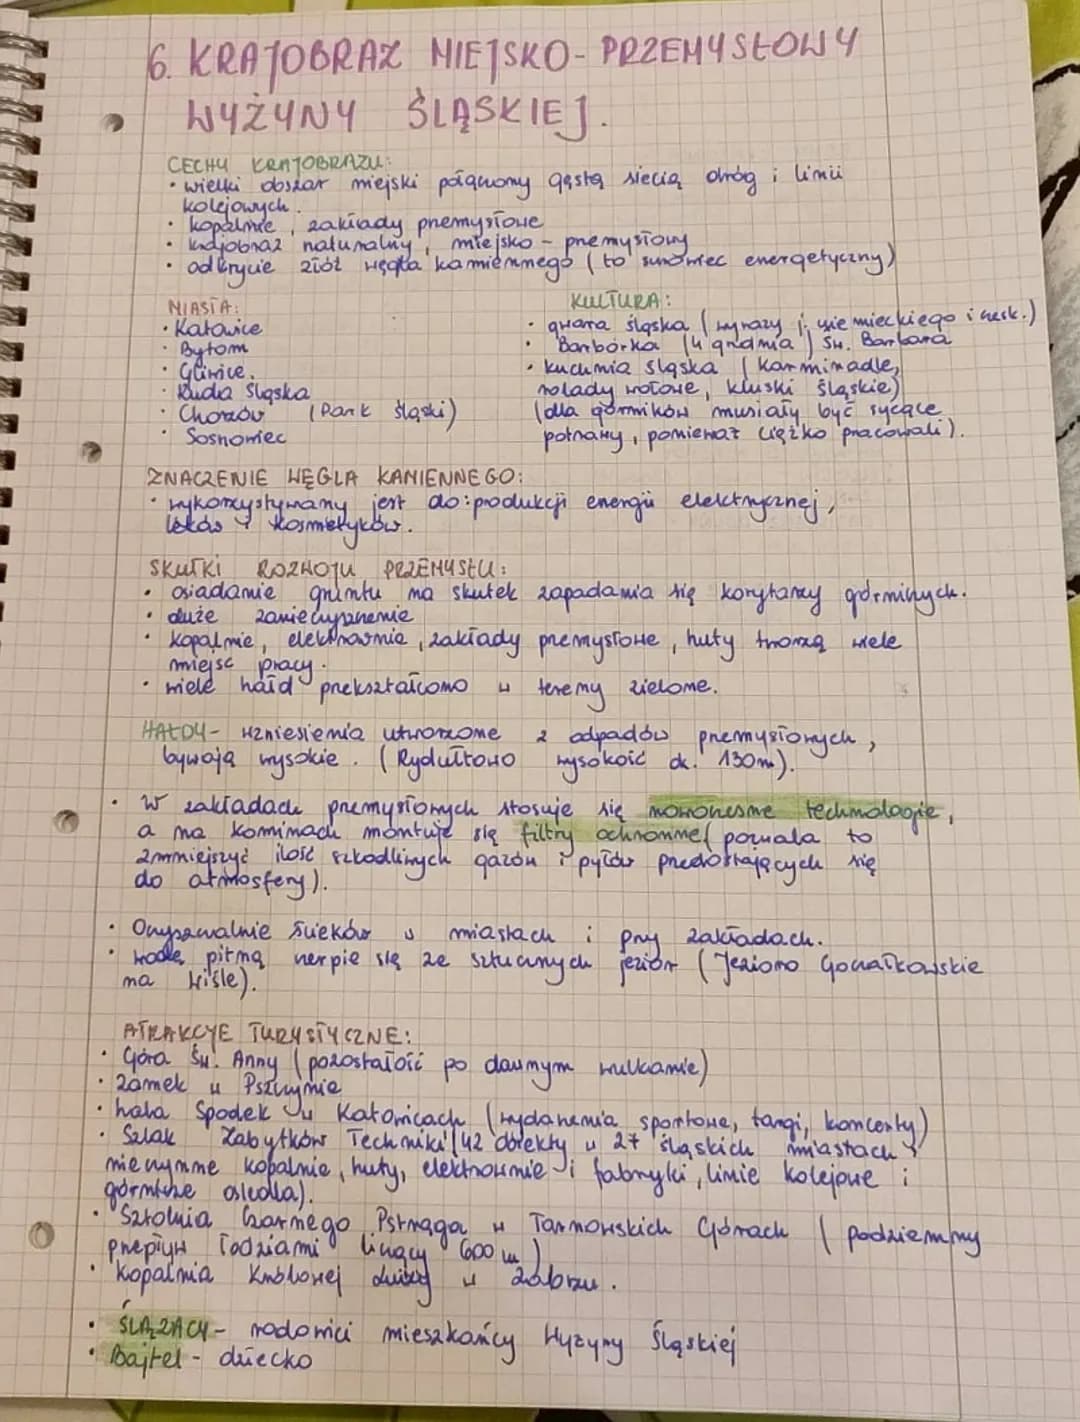 6. KRAJOBRAZ MIEJSKO-PRZEMYSŁOWY
WYŻYNY ŚLĄSKIEJ.
CECHY KRAJOBRAZU:
• wielki obszar miejski połączony gęstą siecią dróg i linii
kolejowych.
• kopalnie, zakłady przemysłowe
• krajobraz naturalny, miejsko-przemysłowy
• odkrycie złóż węgla kamiennego (to surowiec energetyczny)
MIASTA:
• Katowice
• Bytom
• Gliwice.
• Ruda Śląska
• Chorzów (Park śląski)
• Sosnowiec
KULTURA:
• gwara śląska (wyrazy j. niemieckiego i czesk.)
• Barbórka (4 grudnia) Św. Barbara
• kuchnia śląska (karminadle,
rolady wołowe, kluski śląskie)
(dla górników musiały być sycące
potrawy, ponieważ ciężko pracowali).
ZNACZENIE WĘGLA KAMIENNEGO:
• wykorzystywany jest do: produkcji energii elektrycznej,
leków i kosmetyków.
SKUTKI ROZWOJU PRZEMYSŁU:
• osiadanie gruntu na skutek zapadania się korytarzy górniczych.
• duże zanieczyszczenie
• kopalnie, elektrownia, zakłady przemysłowe, huty tworzą wiele
miejsc pracy.
• wiele hałd przekształcono w tereny zielone.
HAŁDY- wzniesienia utworzone z odpadów przemysłowych,
bywają wysokie. (Rydułtowo wysokość ok. 130m).
• W zakładach przemysłowych stosuje się nowoczesne technologie,
a na kominach montuje się filtry ochronne (pozwala to
zmniejszyć ilość szkodliwych gazów i pyłów przedostających się
do atmosfery).
• Oczyszczalnie ścieków w miastach i przy zakładach.
• wodę pitną czerpie się ze sztucznych jezior (Jezioro Goczałkowskie
na Wiśle).
ATRAKCYJE TURYSTYCZNE:
• Góra Św. Anny (pozostałość po dawnym wulkanie)
• Zamek w Pszczynie
• hala Spodek w Katowicach (wydarzenia sportowe, targi, koncerty)
• Szlak Zabytków Techniki (42 obiekty w 27 śląskich miastach
nieczynne kopalnie, huty, elektrownie i fabryki, linie kolejowe i
górnicze osiedla).
• Sztolnia Czarnego Pstrąga w Tarnowskich Górach (podziemny
przepływ łodziami liczący 600 m)
• Kopalnia Królowej Luizy w Zabrzu.
• ŚLĄZACY- rodowici mieszkańcy Wyżyny Śląskiej
• Bajtel - dziecko